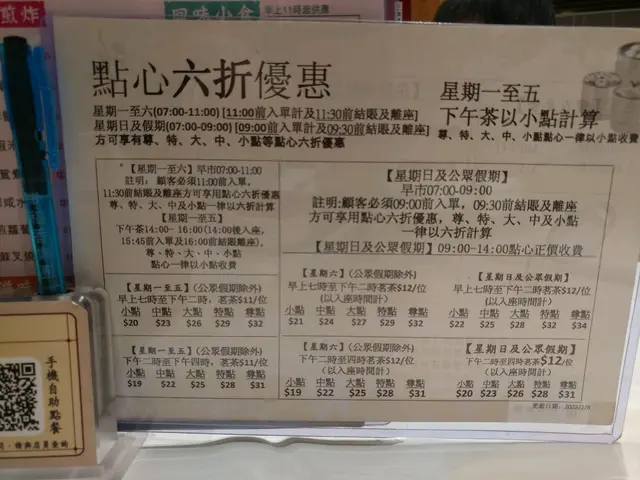 煎炸
手上11時起供應
點心六折優惠
星期一至六(07:00-11:00) [11:00前入單計及11:30前結賬及離座]
星期日及假期(07:00-09:00) [09:00前入單計及09:30前結賬及離座]
方可享有尊、特、大、中、小點等點心六折優惠
星期一至五
下午茶以小點計算
尊、特、大、中、小點點心一律以小點收費
【星期一至六】早市07:00-11:00
註明: 顧客必須11:00前入單,
11:30前結賬及離座方可享用點心六折優惠
尊、特、大、中、小點一律以六折計算
【星期一至五】
下午茶14:00- 16:00(14:00後入座,
15:45前入單及16:00前結賬離座),
尊、特、大、中、小點
點心一律以小點收費
【星期日及公眾假期】
早市07:00-09:00
註明:顧客必須09:00前入單, 09:30前結賬及離座
方可享用點心六折優惠, 尊、特、大、中及小點
一律以六折計算
【星期日及公眾假期】09:00-14:00點心正價收費
【星期一至五】(公眾假期除外)
早上七時至下午二時, 茗茶$12/位
小點 中點 大點 特點 尊點
$20 $23 $26 $29 $32
【星期六】(公眾假期除外)
早上七時至下午二時茗茶$12/位
(以入座時間計)
小點 中點 大點 特點 尊點
$21 $24 $27 $29 $32
【星期日及公眾假期】
早上七時至下午二時茗茶$12/位
(以入座時間計)
小點 中點 大點 特點 尊點
$22 $25 $28 $32 $34
【星期一至五】(公眾假期除外)
下午二時至下午四時, 茗茶$11/位
小點 中點 大點 特點 尊點
$19 $22 $25 $28 $31
【星期六】(公眾假期除外)
下午二時至四時茗茶$12/位
(以入座時間計)
小點 中點 大點 特點 尊點
$19 $22 $25 $28 $31
【星期日及公眾假期】
下午二時至四時茗茶$12/位
(以入座時間計)
小點 中點 大點 特點 尊點
$20 $23 $26 $28 $31
更新日期:
手機自助點餐